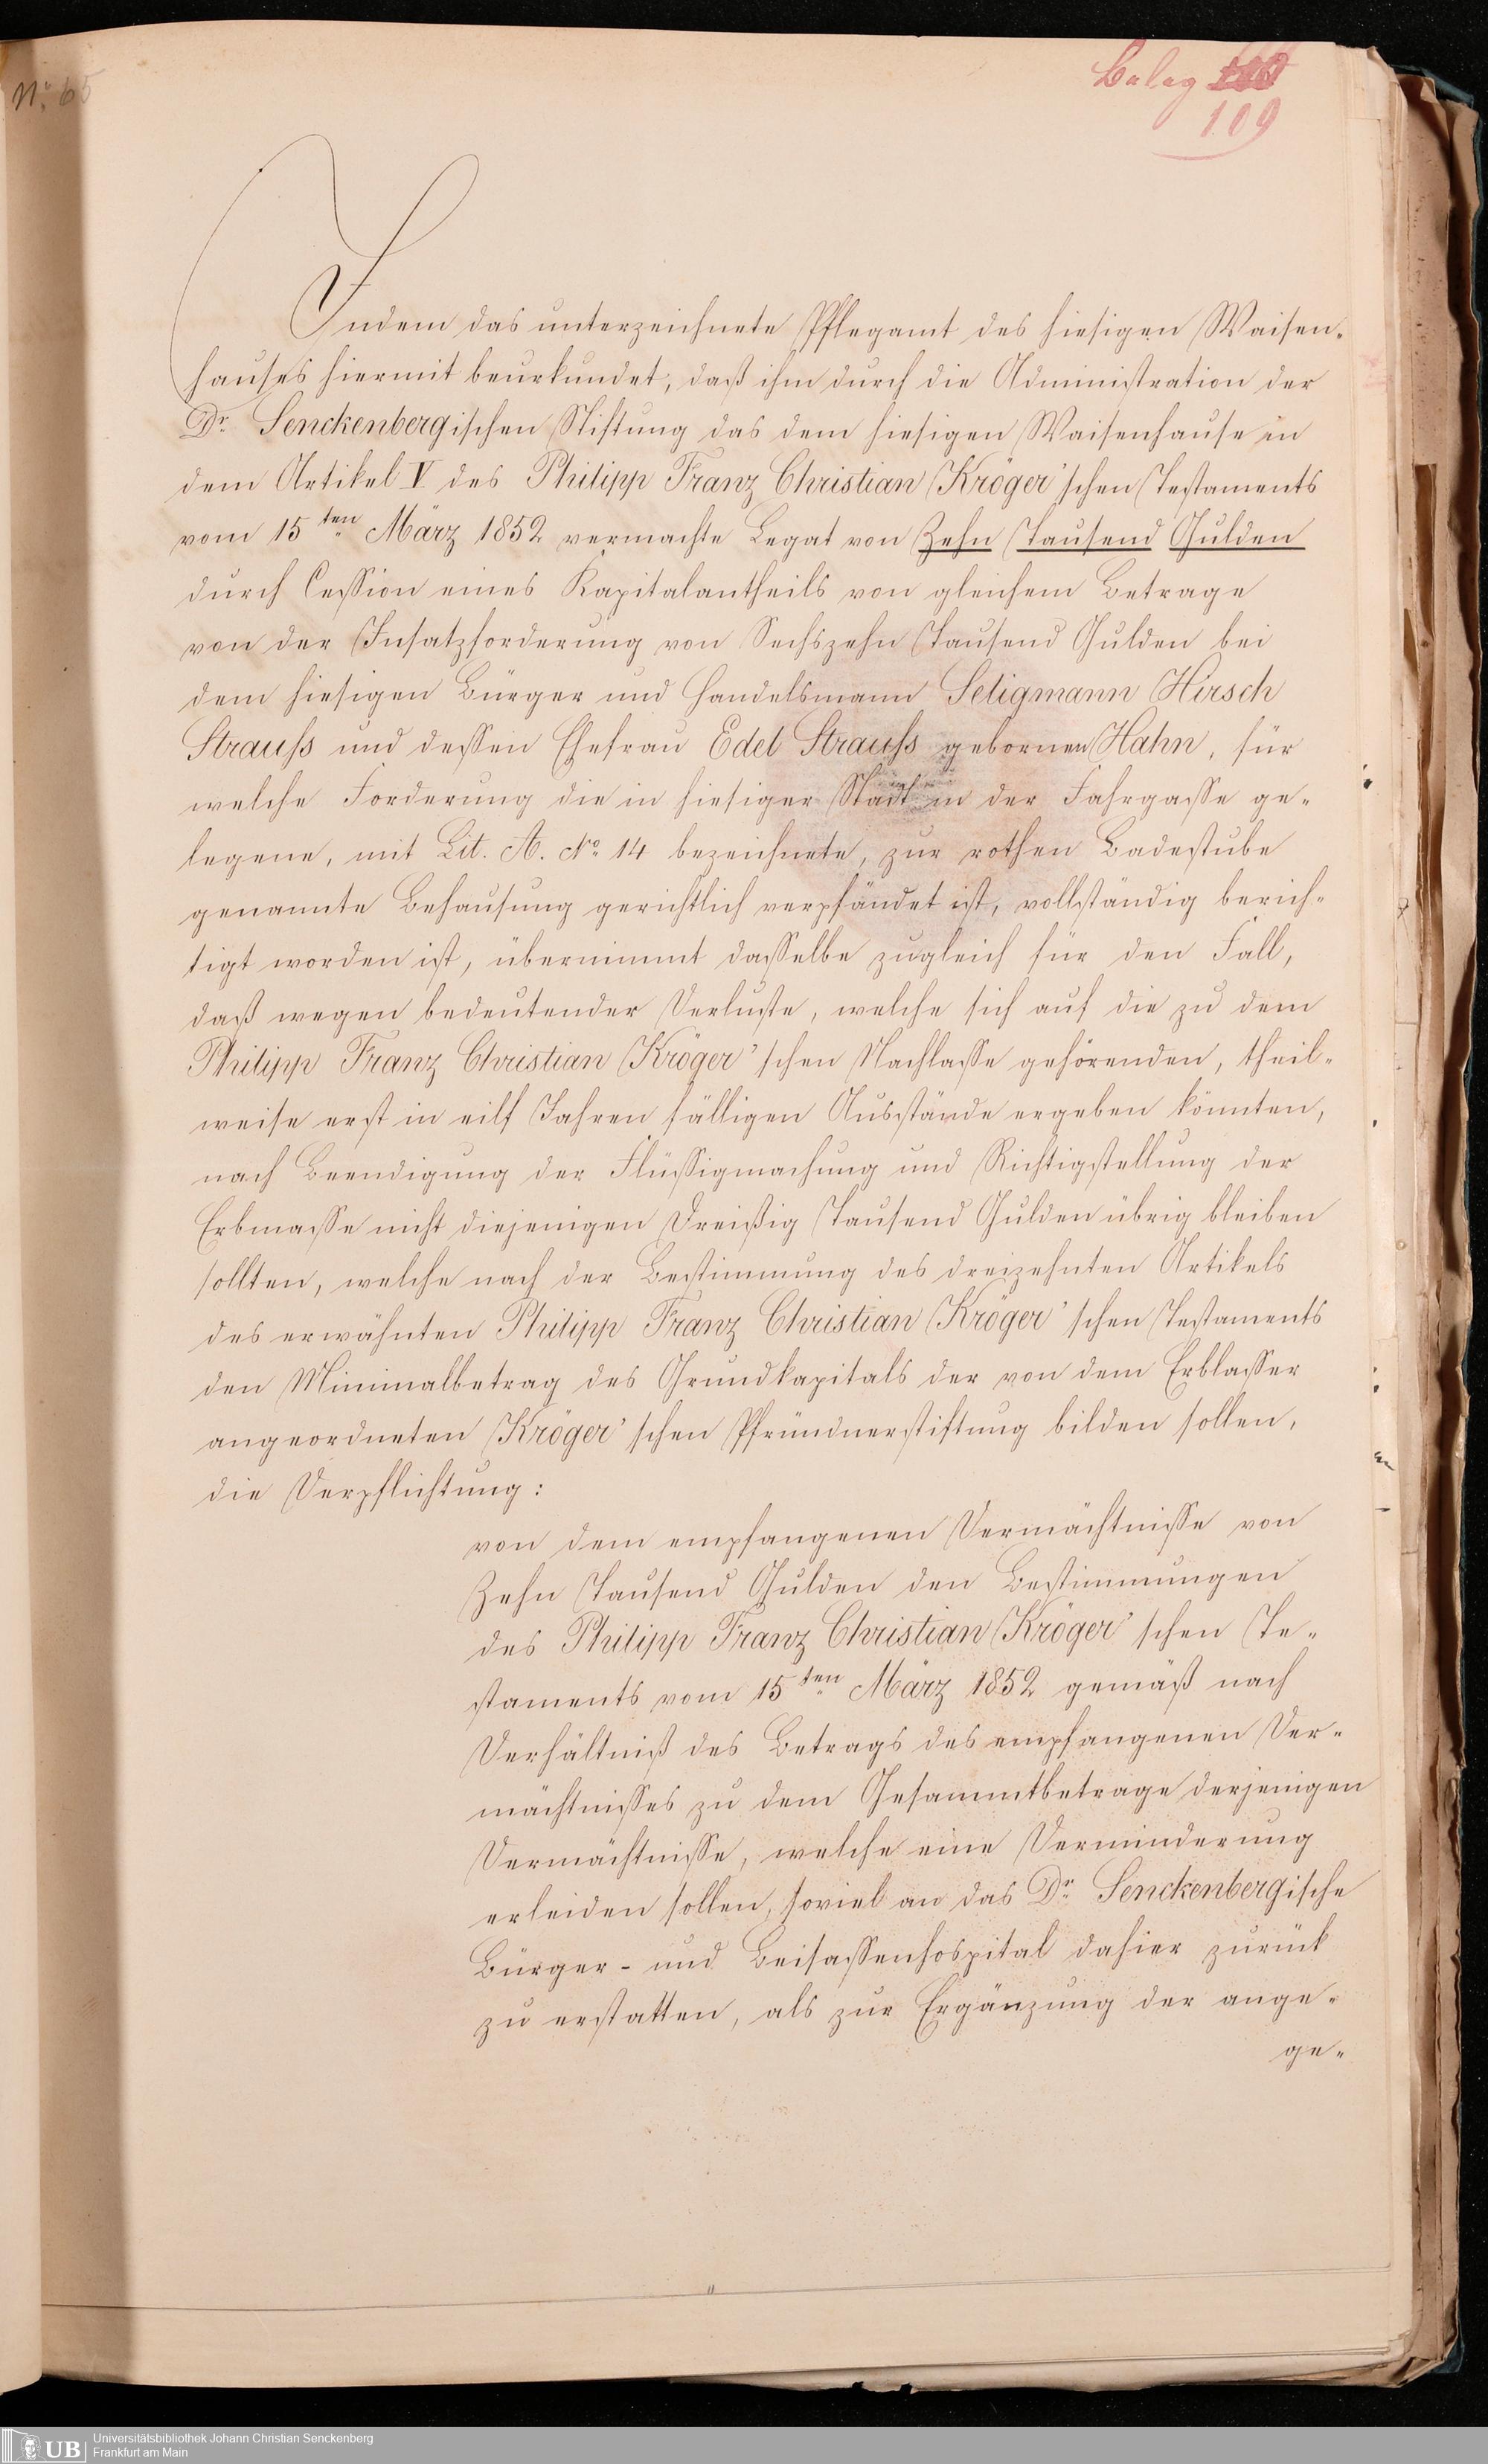 No. 65
Beleg
109
Indem das unterzeichnete Pflegamt des hiesigen Waisen-
hauses hiermit beurkundet, daß ihm durch die Administration der
Dr. Senckenbergischen Stiftung das dem hiesigen Waisenhause in
dem Artikel V des Philipp Franz Christian Kröger'schen Testaments
vom 15ten März 1852 vermachte Legat von Zehn Tausend Gulden
durch Cession eines Kapitalantheils von gleichem Betrage
von der Insatzforderung von Sechszehn Tausend Gulden bei
dem hiesigen Bürger und Handelsmann Seligmann Hirsch
Strauss und dessen Ehefrau Edel Strauss gebornen Hahn, für
welche Forderung die in hiesiger Stadt in der Fahrgasse ge-
legene, mit Lit. A. No. 14 bezeichnete, zur rothen Badestube
genannte Behausung gerichtlich verpfändet ist, vollständig berich-
tigt worden ist, übernimmt dasselbe zugleich für den Fall,
daß wegen bedeutender Verluste, welche sich auf die zu dem
Philipp Franz Christian Kröger'schen Nachlasse gehörenden, theil-
weise erst in eilf Jahren fälligen Ausstände ergeben könnten,
nach Beendigung der Flüssigmachung und Richtigstellung der
Erbmasse nicht diejenigen Dreißig Tausend Gulden übrig bleiben
sollten, welche nach der Bestimmung des dreizehnten Artikels
des erwähnten Philipp Franz Christian Kröger'schen Testaments
den Minimalbetrag des Grundkapitals der von dem Erblasser
angeordneten Kröger'schen Pfründnerstiftung bilden sollen,
die Verpflichtung:
von dem empfangenen Vermächtnisse von
Zehn Tausend Gulden den Bestimmungen
des Philipp Franz Christian Kröger'schen Te-
staments vom 15ten März 1852 gemäß nach
Verhältniß des Betrags des empfangenen Ver-
mächtnisses zu dem Gesammtbetrage derjenigen
Vermächtnisse, welche eine Verminderung
erleiden sollen, soviel an das Dr. Senckenbergische
Bürger- und Beisassenhospital dahier zurück
zu erstatten, als zur Ergänzung der ange-
ge-
UB
Universitätsbibliothek Johann Christian Senckenberg
Frankfurt am Main